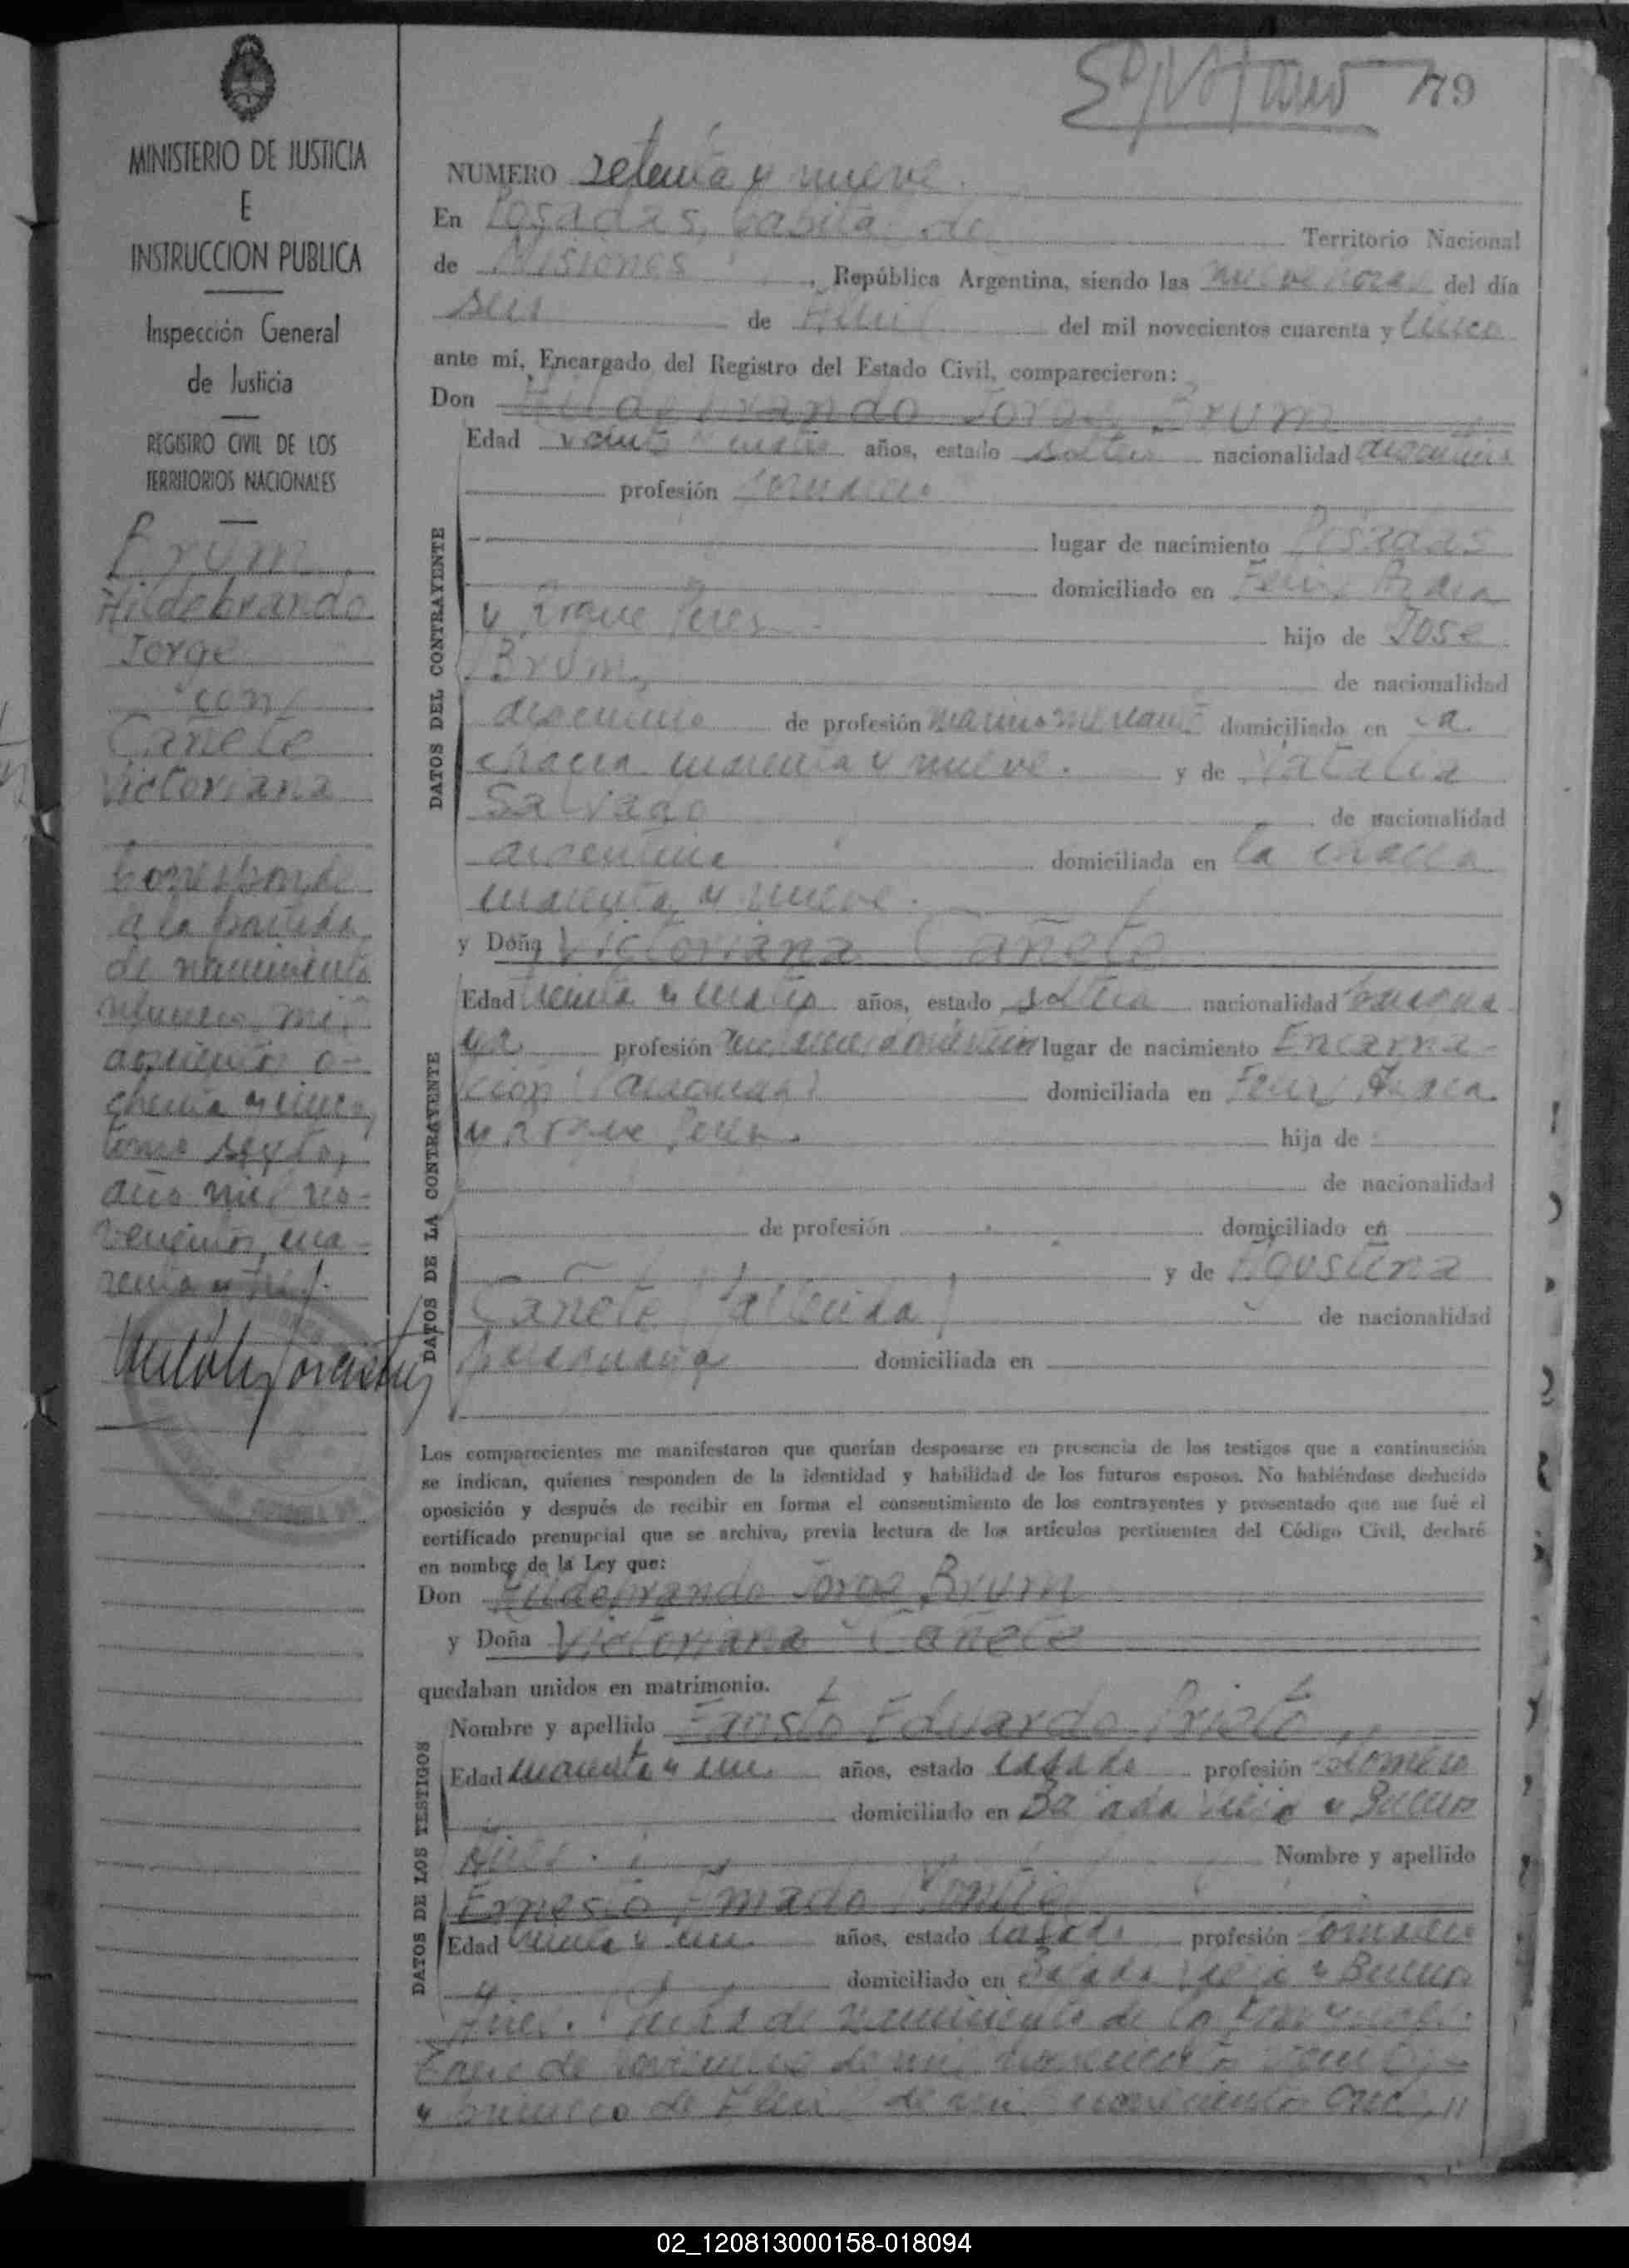 79
MINISTERIO DE JUSTICIA
E
INSTRUCCION PUBLICA
Inspección General
de Justicia
REGISTRO CIVIL DE LOS
TERRITORIOS NACIONALES
Brum
Hildebrando
Jorge
con
Cañete
Victoriana
Corresponde
a la partida
de nacimiento
número mil
doscientos o-
chenta y cinco,
tomo sexto,
año mil no-
vecientos cua-
renta y
NUMERO setenta y nueve.
En Posadas, Capital de Territorio Nacional
de Misiones, República Argentina, siendo las nueve horas del día
seis de del mil novecientos cuarenta y cinco
ante mí, Encargado del Registro del Estado Civil, comparecieron:
Don Hildebrando Jorge Brum
Edad veinte y cuatro años, estado soltero nacionalidad argentina
profesión jornalero
DATOS DEL CONTRAYENTE
lugar de nacimiento Posadas
domiciliado en
y Roque Perez hijo de José
Brum, de nacionalidad
argentino de profesión marino mercante domiciliado en la
chacra cuarenta y nueve. y de Natalia
Salvado de nacionalidad
argentina domiciliada en la chacra
cuarenta y nueve.
y Doña Victoriana Cañete
Edad treinta y cuatro años, estado soltera nacionalidad paragua
ya profesión lugar de nacimiento Encarna-
ción (Paraguay) domiciliada en
y Roque Perez. hija de
DATOS DE LA CONTRAYENTE
de nacionalidad
de profesión domiciliado en
y de Agustina
Cañete (fallecida) de nacionalidad
paraguaya domiciliada en
Los comparecientes me manifestaron que querían desposarse en presencia de los testigos que a continuación
se indican, quienes responden de la identidad y habilidad de los futuros esposos. No habiéndose deducido
oposición y después de recibir en forma el consentimiento de los contrayentes y presentado que me fué el
certificado prenupcial que se archiva, previa lectura de los artículos pertinentes del Código Civil, declaré
en nombre de la Ley que:
Don Hildebrando Jorge Brum
y Doña Victoriana Cañete
quedaban unidos en matrimonio.
DATOS DE LOS TESTIGOS
Nombre y apellido Fausto Eduardo Prieto
Edad cuarenta y un años, estado casado profesión
domiciliado en Bajada Vieja y Buenos
Aires. Nombre y apellido
Ernesto Amado Montiel
Edad treinta y un años, estado casado profesión jornalero
domiciliado en Bajada Vieja y Buenos
Aires. de nacimiento de los
de de mil novecientos
y primero de de mil novecientos once, //
02_120813000158-018094